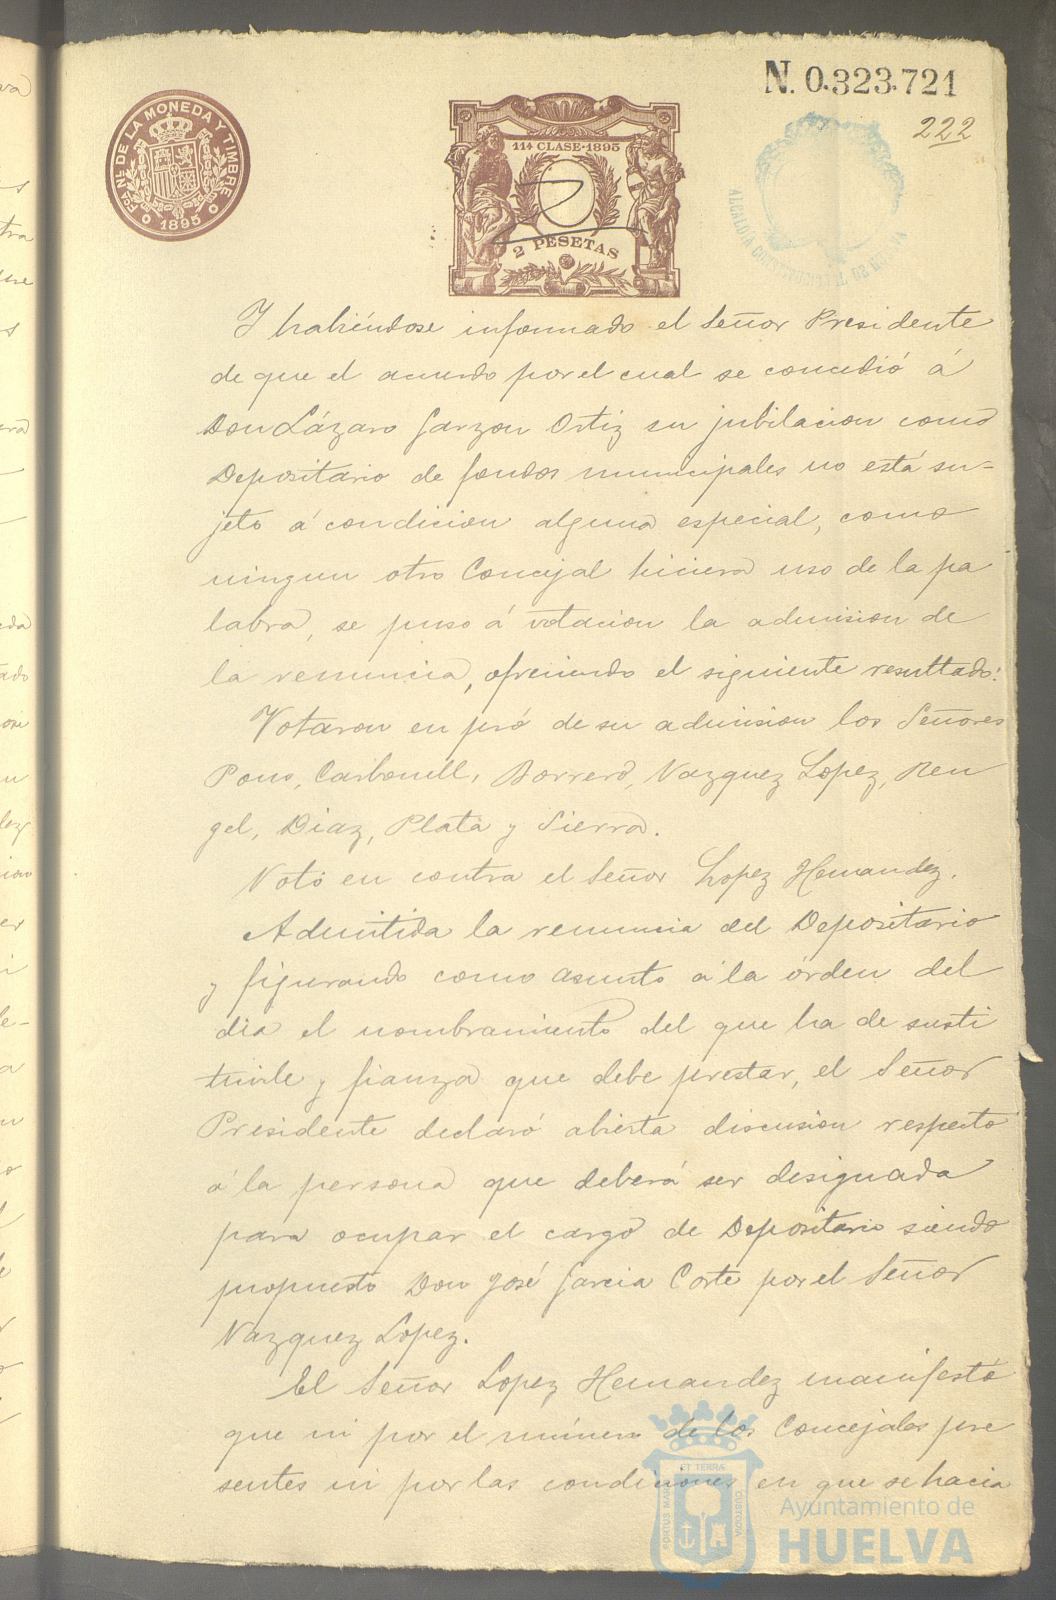 N. 0.323.721
222
FCA. NL. DE LA MONEDA Y TIMBRE
1895
11ª CLASE·1895
2 PESETAS
ALCALDIA CONSTITUCIONAL DE HUELVA
Y habiéndose informado el Señor Presidente
de que el acuerdo por el cual se concedió á
Don Lázaro Garzon Ortiz su jubilacion como
Depositario de fondos municipales no está su-
jeto á condicion alguna especial, como
ningun otro Concejal hiciera uso de la pa
labra, se puso á votacion la admision de
la renuncia, ofreciendo el siguiente resultado:
Votaron en pró de su admision los Señores
Pons, Carbonell, Borrero, Vazquez Lopez, Ren
gel, Diaz, Plata y Sierra.
Votó en contra el Señor Lopez Hernandez.
Admitida la renuncia del Depositario
y figurando como asunto á la órden del
dia el nombramiento del que ha de susti
tuirle y fianza que debe prestar, el Señor
Presidente declaró abierta discusion respecto
á la persona que deberá ser designada
para ocupar el cargo de Depositario siendo
propuesto Don José Garcia Corte por el Señor
Vazquez Lopez.
El Señor Lopez Hernandez manifestó
que ni por el número de los Concejales pre
sentes ni por las condiciones en que se hacia
PORTUS MARIS ET TERRÆ CUSTODIA
Ayuntamiento de
HUELVA